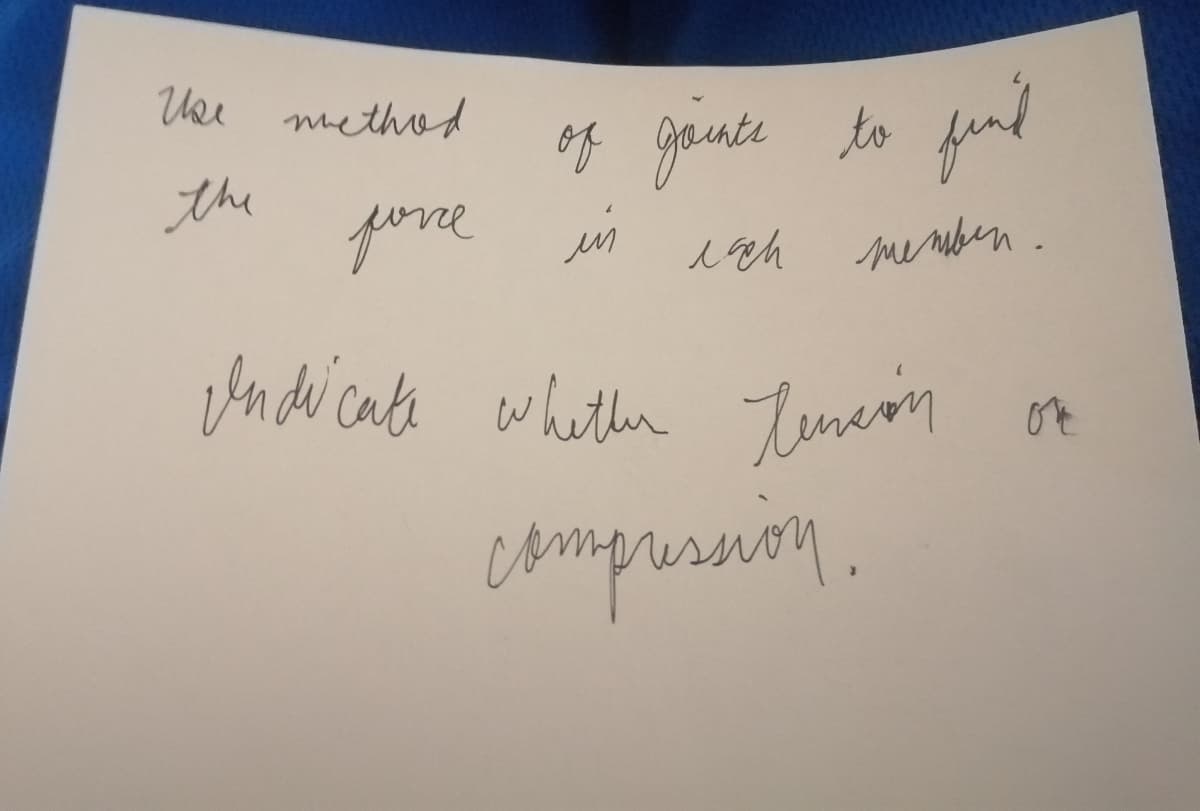 Use method of joints to find
the force in each member.
Indicate whether Tension or
compression.